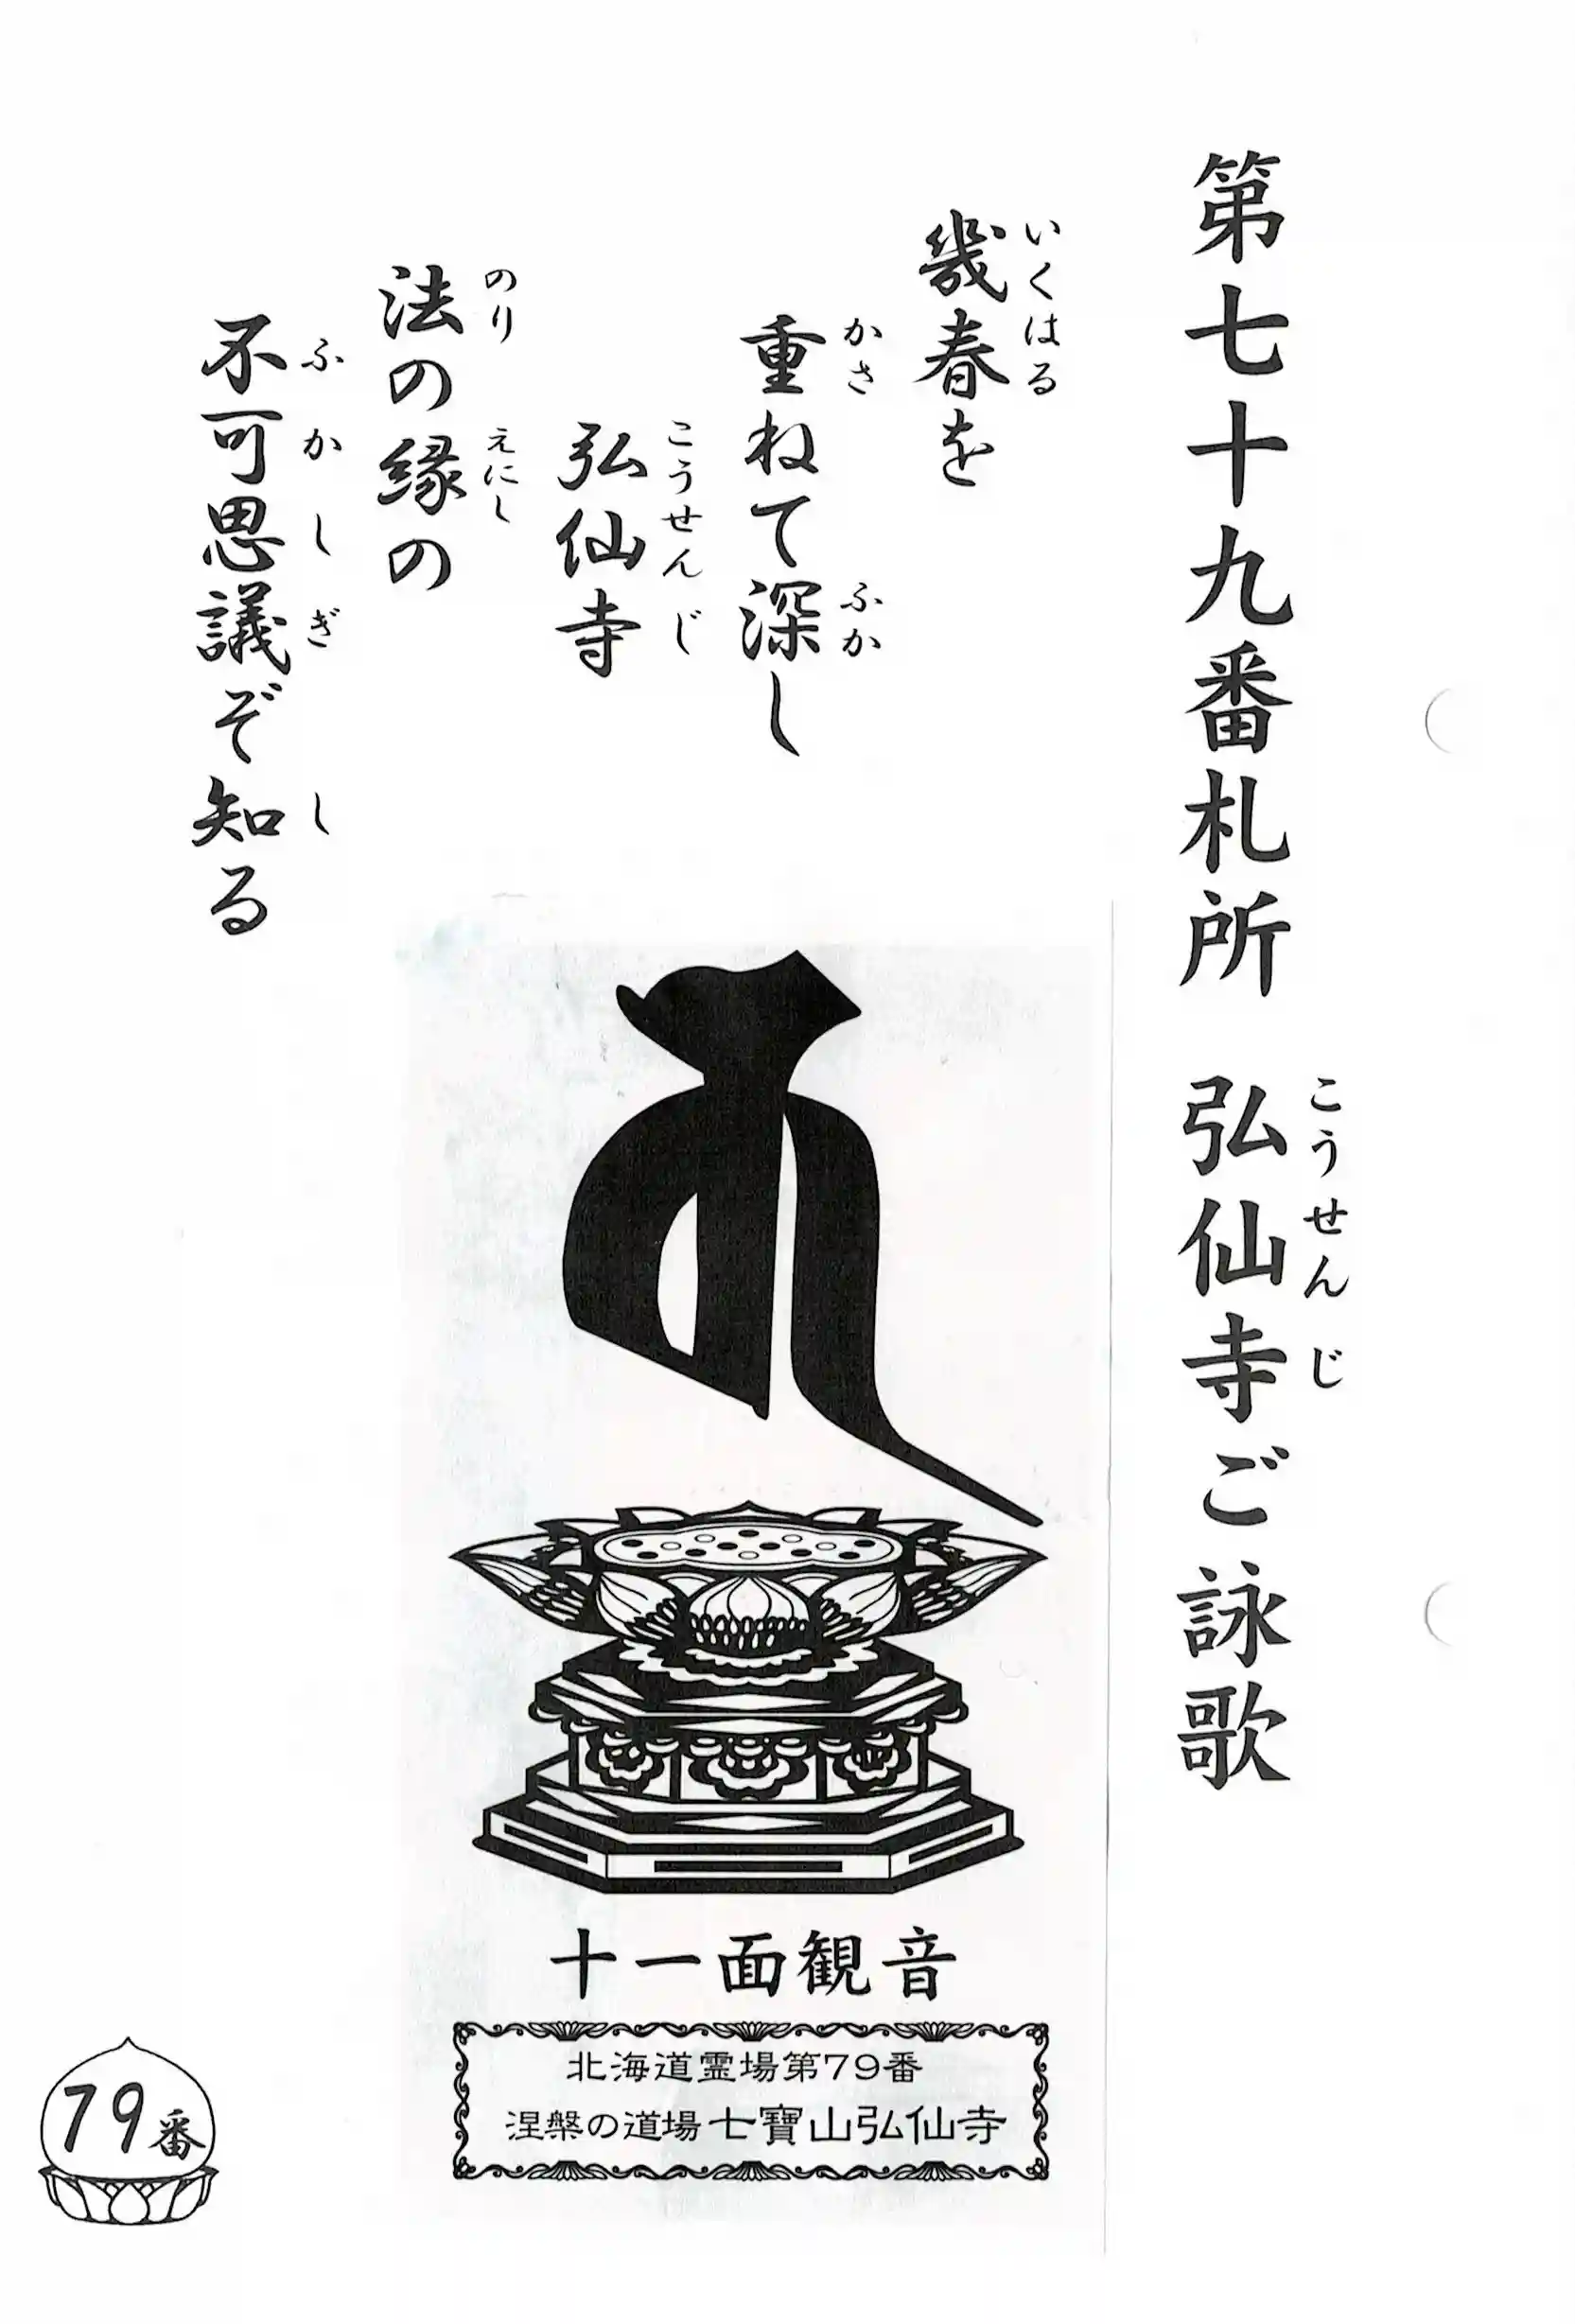 第七十九番札所 弘仙寺ご詠歌
こうせんじ
幾春を
いくはる
重ねて深し
かさ ふか
弘仙寺
こうせんじ
法の縁の
のり えにし
不可思議ぞ知る
ふかしぎ し
十一面観音
北海道霊場第79番
涅槃の道場七寶山弘仙寺
79番